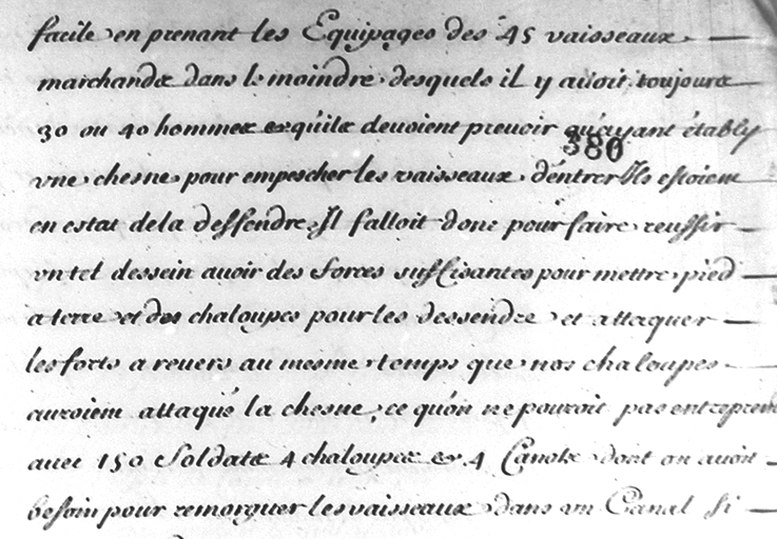 facile en prenant les Equipages des 45 vaisseaux
marchands dans le moindre desquels il y auoit toujours
30 ou 40 hommes et quils deuoient preuoir qu'ayant étably
380
vne chesne pour empescher les vaisseaux d'entrer Ils estoient
en estat dela deffendre, Il falloit donc pour faire reussir
vn tel dessein auoir des forces suffisantes pour mettre pied
a terre et des chaloupes pour les dessendre et attaquer
les forts a reuers au mesme temps que nos chaloupes
auroient attaqué la chesne, ce qu'on ne pouuoit pas entreprend
auec 150 Soldats 4 chaloupes et 4 Canots dont on auoit
besoin pour remorquer les vaisseaux dans vn Canal si